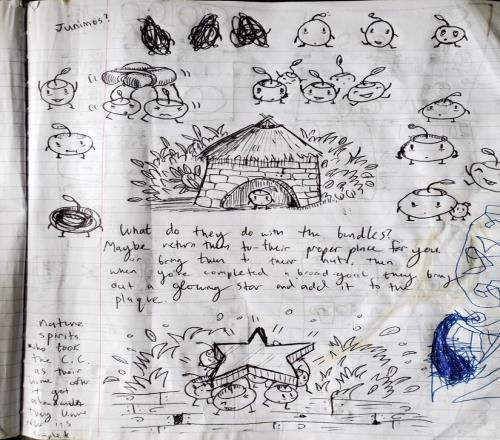 Junimos?
What do they do with the bundles?
Maybe return them to their proper place for you
or bring them to their huts, then
when you've completed a broad goal, they bring
out a glowing star and add it to the
plaque.
Nature
spirits
who took
the C.C.
as their
home after
got
abandoned
they leave
its